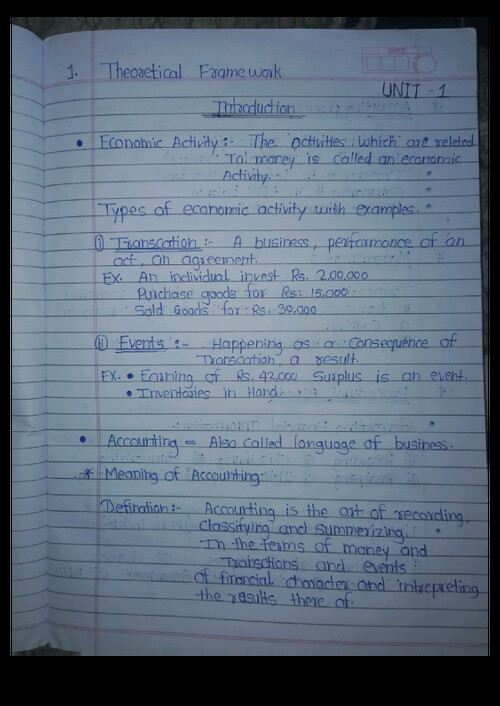 1. Theoretical Framework
UNIT - 1
Introduction
• Economic Activity :- The activities which are releted
To money is called an economic
Activity.
Types of economic activity with examples.
(i) Transcation :- A business, performance of an
act, an agreement.
EX. An individual invest Rs. 2,00,000
Purchase goods for Rs: 15,000
Sold Goods for Rs. 30,000
(ii) Events :- Happening as a Consequence of
Transcation, a result.
EX. • Earning of Rs. 42,000 Surplus is an event.
• Inventaries in Hand.
• Accounting = Also called language of business.
* Meaning of Accounting:
Defination :- Accounting is the art of recording,
classifying and summerizing
In the terms of money and
transctions and events
of financial character and intrepreting
the results there of.